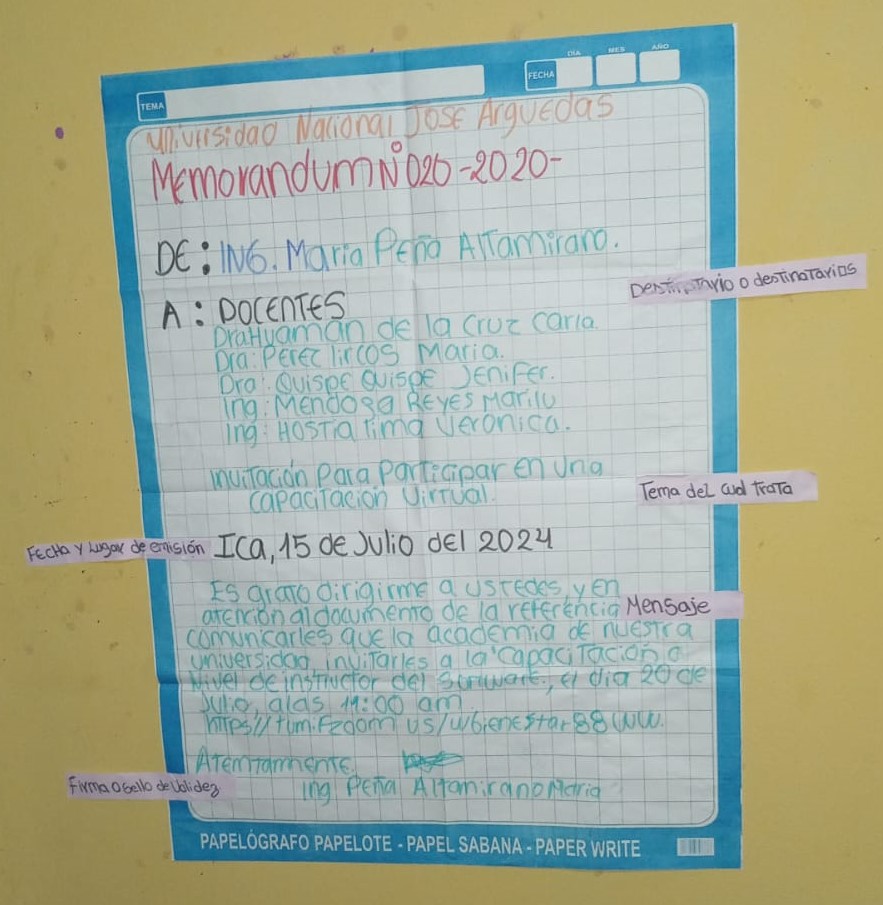 TEMA
FECHA
DÍA
MES
AÑO
Universidad Nacional José Arguedas
MemorandumN°020-2020-
DE: ING. Maria Peña Altamirano.
Destinatario o destinatarios
A: DOCENTES
Dra Huaman de la Cruz Carla.
Dra: Perez lircos Maria.
Dra: Quispe Quispe Jenifer.
Ing: Mendoza Reyes Marilu
Ing: Hostia rima Veronica.
invitación Para Participar en una
capacitación Virtual.
Tema del cual trata
Fecha y lugar de emisión
Ica, 15 de Julio del 2024
Es grato dirigirme a ustedes, y en
atención al documento de la referencia
Mensaje
comunicarles que la academia de nuestra
universidad, invitarles a la capacitación a
Nivel de instructor del software, el dia 20 de
Julio, alas 11:00 am.
https//
Atemtamnente.
Firma o sello de Validez
ing Peña Altamirano Maria
PAPELÓGRAFO PAPELOTE - PAPEL SABANA - PAPER WRITE